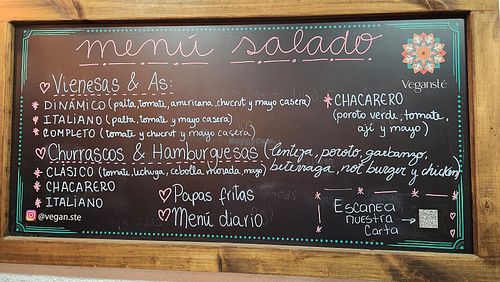 menú salado
Vegansté
♡ Vienesas & As:
* DINÁMICO (palta, tomate, americana, chucrut y mayo casera)
* ITALIANO (palta, tomate y mayo casera)
* COMPLETO (tomate y chucrut y mayo casera)
* CHACARERO
(poroto verde, tomate,
ají y mayo)
♡ Churrascos & Hamburguesas (lenteja, poroto, garbanzo,
betarraga, not burger y chicken)
* CLÁSICO (tomate, lechuga, cebolla morada, mayo)
* CHACARERO
* ITALIANO
♡ Papas fritas
♡ Menú diario
Escanea
nuestra →
Carta
@vegan.ste